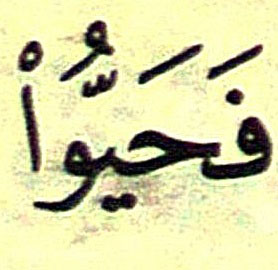 فَحَيُّواْ